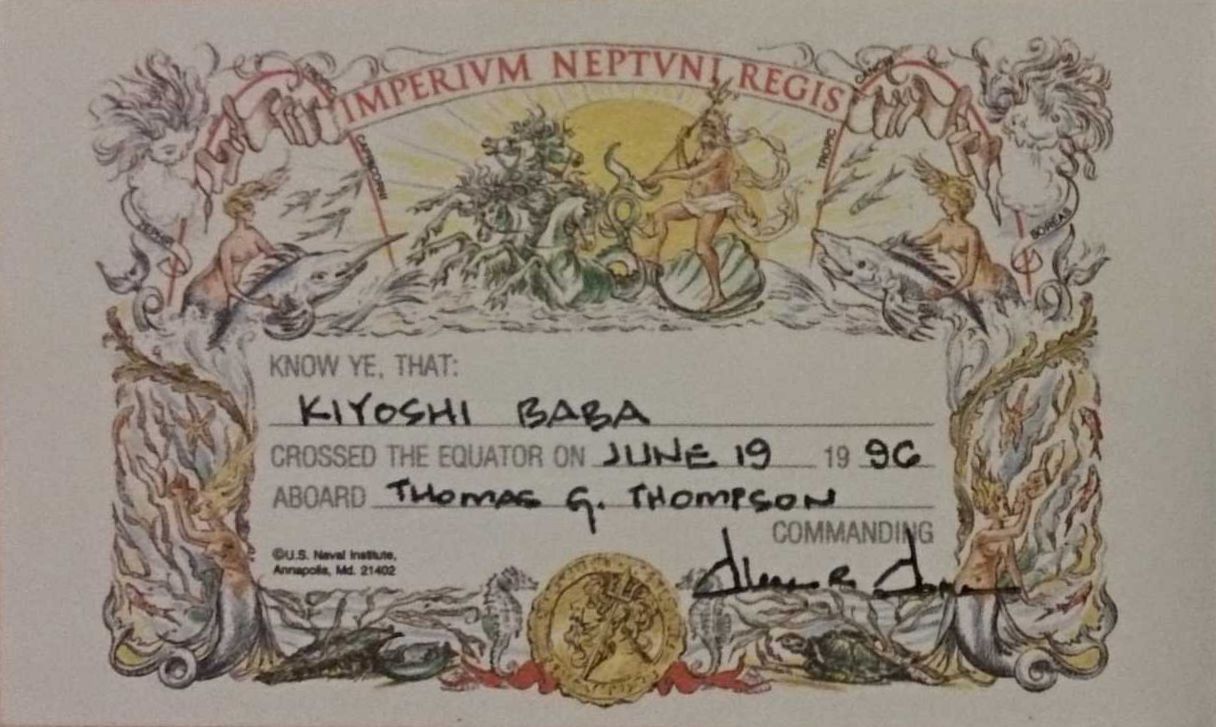 IMPERIVM NEPTVNI REGIS
CANCER
CAPRICORN
TROPIC
ZEPHIR
BOREAS
KNOW YE, THAT:
KIYOSHI BABA
CROSSED THE EQUATOR ON JUNE 19 19 96
ABOARD THOMAS G. THOMPSON
COMMANDING
©U.S. Naval Institute,
Annapolis, Md. 21402